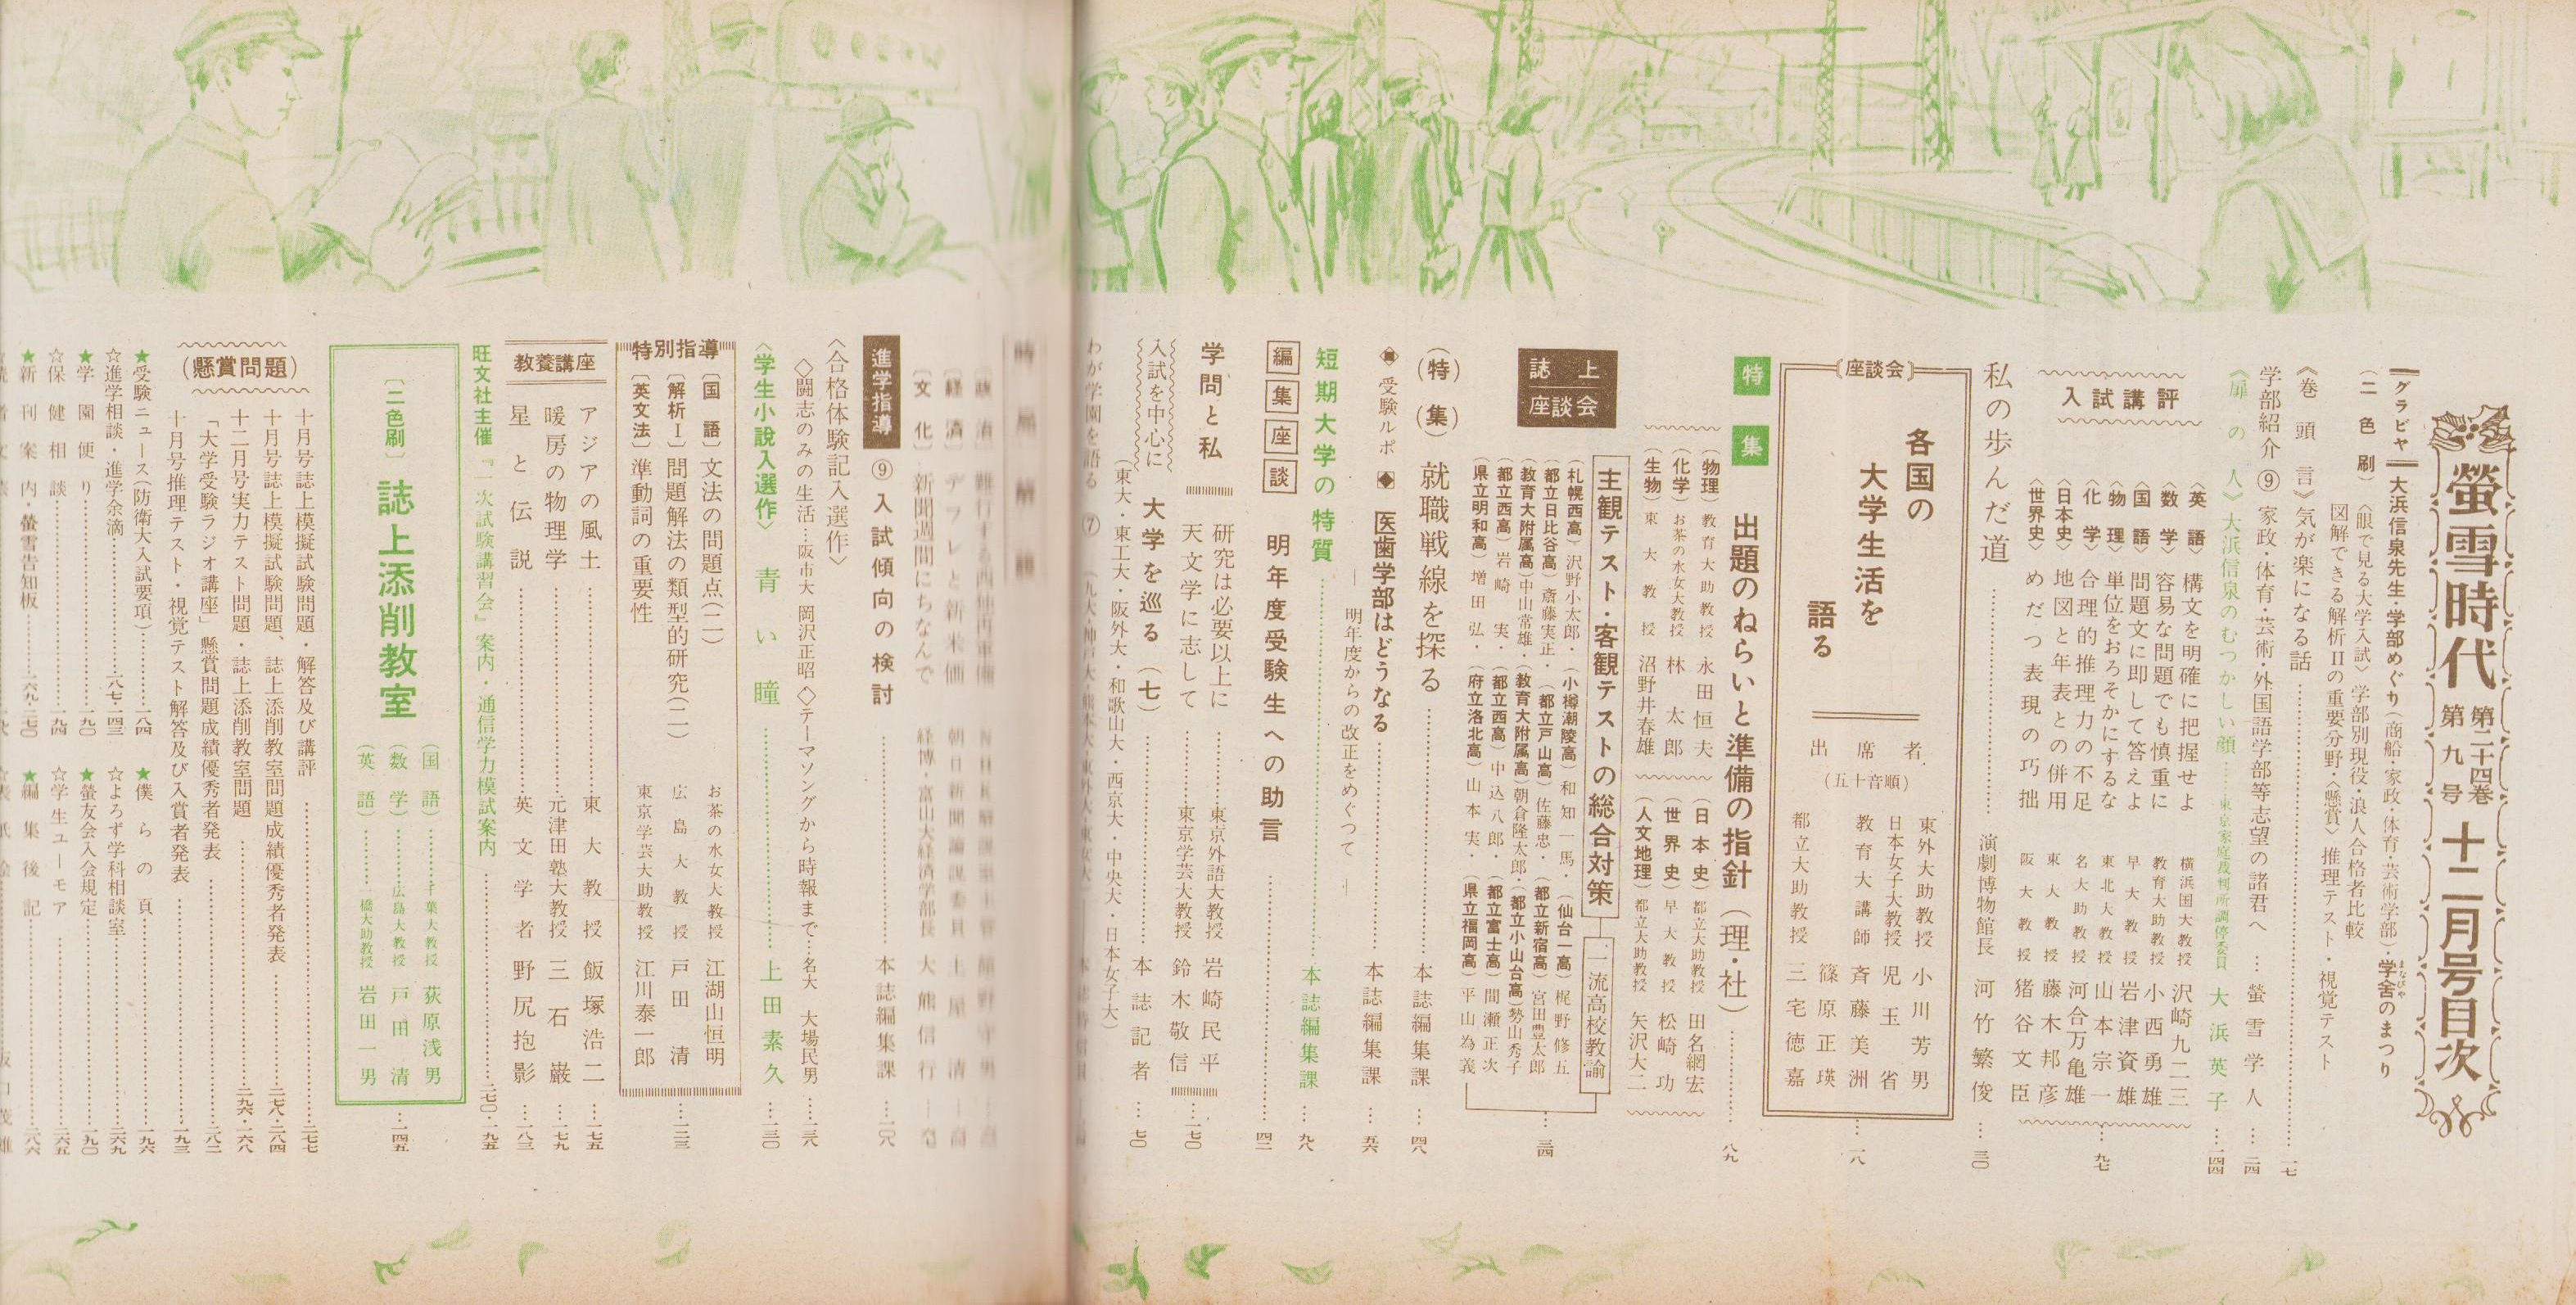 螢雪時代 第二十四巻 第九号 十二月号目次
グラビヤ 大浜信泉先生・学部めぐり(商船・家政・体育・芸術学部)・学舎のまつり
まなびや
(二色刷) 〈眼で見る大学入試〉学部別現役・浪人合格者比較
図解できる解析Ⅱの重要分野・〈懸賞〉推理テスト・視覚テスト
《巻頭言》気が楽になる話……一七
学部紹介 ⑨ 家政・体育・芸術・外国語学部等志望の諸君へ…螢雪学人…二四
《扉の人》大浜信泉のむつかしい顔……東京家庭裁判所調停委員 大浜英子……一四四
入試講評
〈英語〉構文を明確に把握せよ 横浜国大教授 沢崎九二三
〈数学〉容易な問題でも慎重に 教育大助教授 小西勇雄
〈国語〉問題文に即して答えよ 早大教授 岩津資雄
〈物理〉単位をおろそかにするな 東北大教授 山本宗一
〈化学〉合理的推理力の不足 名大助教授 河合万亀雄
〈日本史〉地図と年表との併用 東大教授 藤木邦彦
〈世界史〉めだつ表現の巧拙 阪大教授 猪谷文臣
……九七
私の歩んだ道……演劇博物館長 河竹繁俊…三〇
座談会
各国の大学生活を語る
出席者(五十音順)
東外大助教授 小川芳男
日本女子大教授 児玉省
教育大講師 斉藤美洲
篠原正瑛
都立大助教授 三宅徳嘉
……一八
特集 出題のねらいと準備の指針(理・社)……八九
(物理)教育大助教授 永田恒夫
(化学)お茶の水女大教授 林太郎
(生物)東大教授 沼野井春雄
(日本史)都立大助教授 田名網宏
(世界史)早大教授 松崎功
(人文地理)都立大助教授 矢沢大二
誌上座談会
主観テスト・客観テストの総合対策 一流高校教諭
(札幌西高)沢野小太郎・(小樽潮陵高)和知一馬・(仙台一高)梶野修五
(都立日比谷高)斎藤実正・(都立戸山高)佐藤忠・(都立新宿高)宮田豊太郎
(教育大附属高)中山常雄・(教育大附属高)朝倉隆太郎(都立小山台高)勢山秀子
(都立西高)岩崎実・(都立西高)中込八郎・(都立富士高)間瀬正次
(県立明和高)増田弘・(府立洛北高)山本実・(県立福岡高)平山為義
……三四
(特集)就職戦線を探る……本誌編集課…四八
◆受験ルポ◆ 医歯学部はどうなる……本誌編集課…五六
―明年度からの改正をめぐつて―
短期大学の特質……本誌編集課…九八
編集座談 明年度受験生への助言……四二
学問と私
研究は必要以上に……東京外語大教授 岩崎民平
天文学に志して……東京学芸大教授 鈴木敬信
……一七〇
入試を中心に 大学を巡る(七)……本誌記者…七〇
(東大・東工大・阪外大・和歌山大・西京大・中央大・日本女子大)
わが学園を語る ⑦
(文化)新聞週間にちなんで 経博・富山大経済学部長 大熊信行
進学指導 ⑨ 入試傾向の検討……本誌編集課…一〇八
〈合格体験記入選作〉
◇闘志のみの生活…阪市大 岡沢正昭 ◇テーマソングから時報まで…名大 大場民男……一三八
〈学生小説入選作〉青い瞳……上田素久…一三〇
特別指導
〔国語〕文法の問題点(二) お茶の水女大教授 江湖山恒明
〔解析Ⅰ〕問題解法の類型的研究(二) 広島大教授 戸田清
〔英文法〕準動詞の重要性 東京学芸大助教授 江川泰一郎
……一二三
教養講座
アジアの風土……東大教授 飯塚浩二…一七五
暖房の物理学……元津田塾大教授 三石巌…一七九
星と伝説……英文学者 野尻抱影…一八三
旺文社主催『一次試験講習会』案内・通信学力模試案内……二七〇・一九五
〔二色刷〕誌上添削教室
(国語)……千葉大教授 荻原浅男
(数学)……広島大教授 戸田清
(英語)……一橋大助教授 岩田一男
……一四五
(懸賞問題)
十月号誌上模擬試験問題・解答及び講評……二七七
十月号誌上模擬試験問題、誌上添削教室問題成績優秀者発表……二七八・二八四
十二月号実力テスト問題・誌上添削教室問題……二九六・一六八
「大学受験ラジオ講座」懸賞問題成績優秀者発表……二八二
十月号推理テスト・視覚テスト解答及び入賞者発表……一九三
★受験ニュース(防衛大入試要項)……一八四
☆進学相談・進学余滴……一八七・一四三
★学園便り……一九〇
☆保健相談……一九四
★新刊案内・螢雪告知板……二六九・二七〇
★僕らの頁……一九六
☆よろず学科相談室……二六九
★螢友会入会規定……一九〇
☆学生ユーモア……二六五
★編集後記……二八六